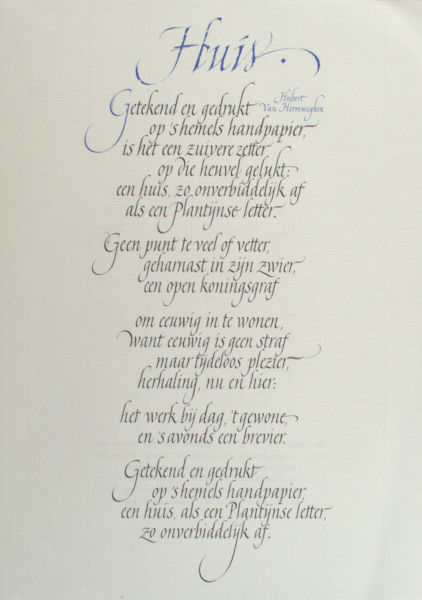 Huis.
Hubert
Van Herreweghen
Getekend en gedrukt
op 's hemels handpapier,
is het een zuivere zetter
op die heuvel gelukt:
een huis, zo onverbiddelijk af
als een Plantijnse letter.
Geen punt te veel of vetter,
geharnast in zijn zwier,
een open koningsgraf
om eeuwig in te wonen,
want eeuwig is geen straf
maar tijdeloos plezier,
herhaling, nu en hier:
het werk bij dag, 't gewone,
en 's avonds een brevier.
Getekend en gedrukt
op 's hemels handpapier,
een huis, als een Plantijnse letter,
zo onverbiddelijk af.